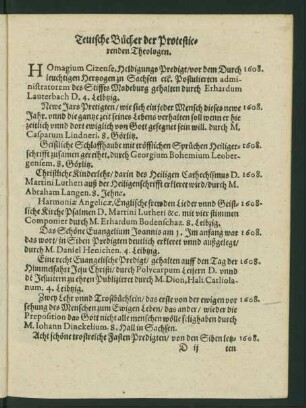 Teutsche Bücher der Protestie-
renden Theologen.
HOmagium Cizense, Heldigungs Predigt/ vor dem Durch 1608.
leuchtigen Hertzogen zu Sachsen etc. Postulierten admi-
nistratorem des Stiffts Madeburg gehalten durch Erhardum
Lauterbach D. 4. Leibzig.
Newe Jars Predigten/ wie sich ein jeder Mensch dieses newe 1608.
Jahr. vnnd die gantze zeit seines Lebens verhalten soll wenn er hie
zeitlich vnnd dort ewiglich von Gott gesegnet sein will. durch M.
Casparum Lindneri. 8. Görlitz.
Geistliche Schlaffhaube mit tröstlichen Sprüchen Heiliger 1608.
schrifft zusamen gereihet, durch Georgium Bohemium Leober-
geniem. 8. Görlitz.
Christliche Kinderlehr/ darin des Heiligen Cathechismus D. 1608.
Martini Lutheri auß der Heiligenschrifft erkleret wird/ durch M.
Abraham Langen. 8. Jehne.
Harmoniæ Angelicæ, Englische frewden Lieder vnnd Geist- 1608.
liche Kirche Psalmen D. Martini Lutheri etc. mit vier stimmen
Componier durch M. Erhardum Bodenschatz. 8. Leibzig.
Das Schöne Euangelium Joannis am 1. Im anfang war 1608.
das wort/ in Siben Predigten deutlich erkleret vnnd außgelegt/
durch M. Daniel Henichen. 4. Leibzig.
Eine recht Euangelische Predigt/ gehalten auff den Tag der 1608.
Himmelfahrt Jesu Christi/ durch Polycarpum Leisern D. vnnd
der Jesuitern zu ehren Publiciert durch M. Dion, Hali. Carliola-
num. 4. Leibzig.
Zwey Lehr vnnd Trostbüchlein/ das erste von der ewigen vor 1608.
sehung des Menschen zum Ewigen Leben/ das ander/ wieder die
Preposition das Gott nicht alle menschen wölle selig haben durch
M. Iohann Dinckelium. 8. Hall in Sachsen.
Acht schöne trostreiche Fasten Predigten/ von den Siben letz- 1608.
D ij ten